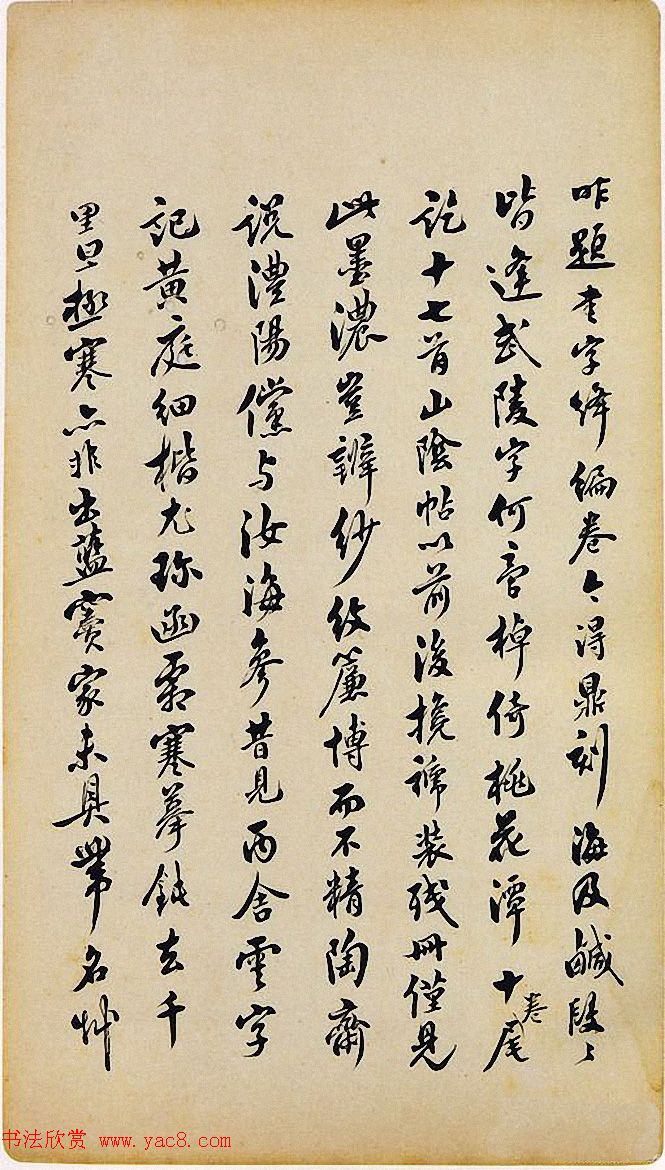 昨題字絳編卷得鼎刻海及鹹段〻
皆逢武陵字何啻棹倚桃花潭十卷尾
訖十七首山陰帖以前後攙裝殘冊僅見
此墨濃豈辨紗紋簾博而不精陶齋
說澧陽儻与汝海參昔見西舍雲字
記黃庭細楷尤珍函霜寒摹鈍去千
里極寒亦非出藍竇家未具名艸
书法欣赏 www.yac8.com